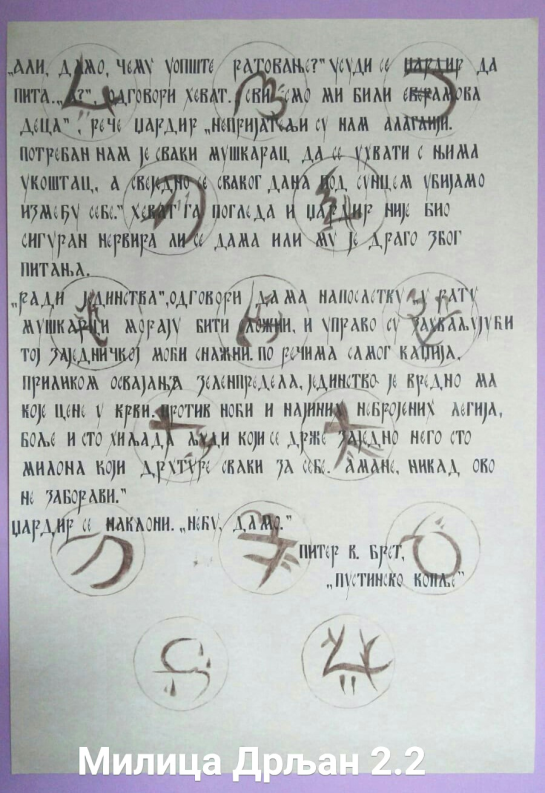 „Али, дамо, чему уопште ратовање?" усуди се Џардир да
пита. „А?", одговори Хеват. „Сви смо ми били Еверамова
деца", рече Џардир „Непријатељи су нам алагаији.
Потребан нам је сваки мушкарац да се ухвати с њима
укоштац, а свеједно се сваког дана под сунцем убијамо
између себе." Хеват га погледа и Џардир није био
сигуран нервира ли се дама или му је драго због
питања.
„Ради јединства", одговори дама напослетку „у рату
мушкарци морају бити сложни, и управо су захваљујући
тој заједничкој моћи снажни. По речима самог Каџија,
приликом освајања Зеленпредела, јединство је вредно ма
које цене у крви. Против ноћи и најиних небројених легија,
боље и сто хиљада људи који се држе заједно него сто
милона који друтуре сваки за себе. Амане, никад ово
не заборави."
Џардир се наклони. „Нећу, дамо."
Питер В. Брет,
„Пустинско копље"
Милица Дрљан 2.2